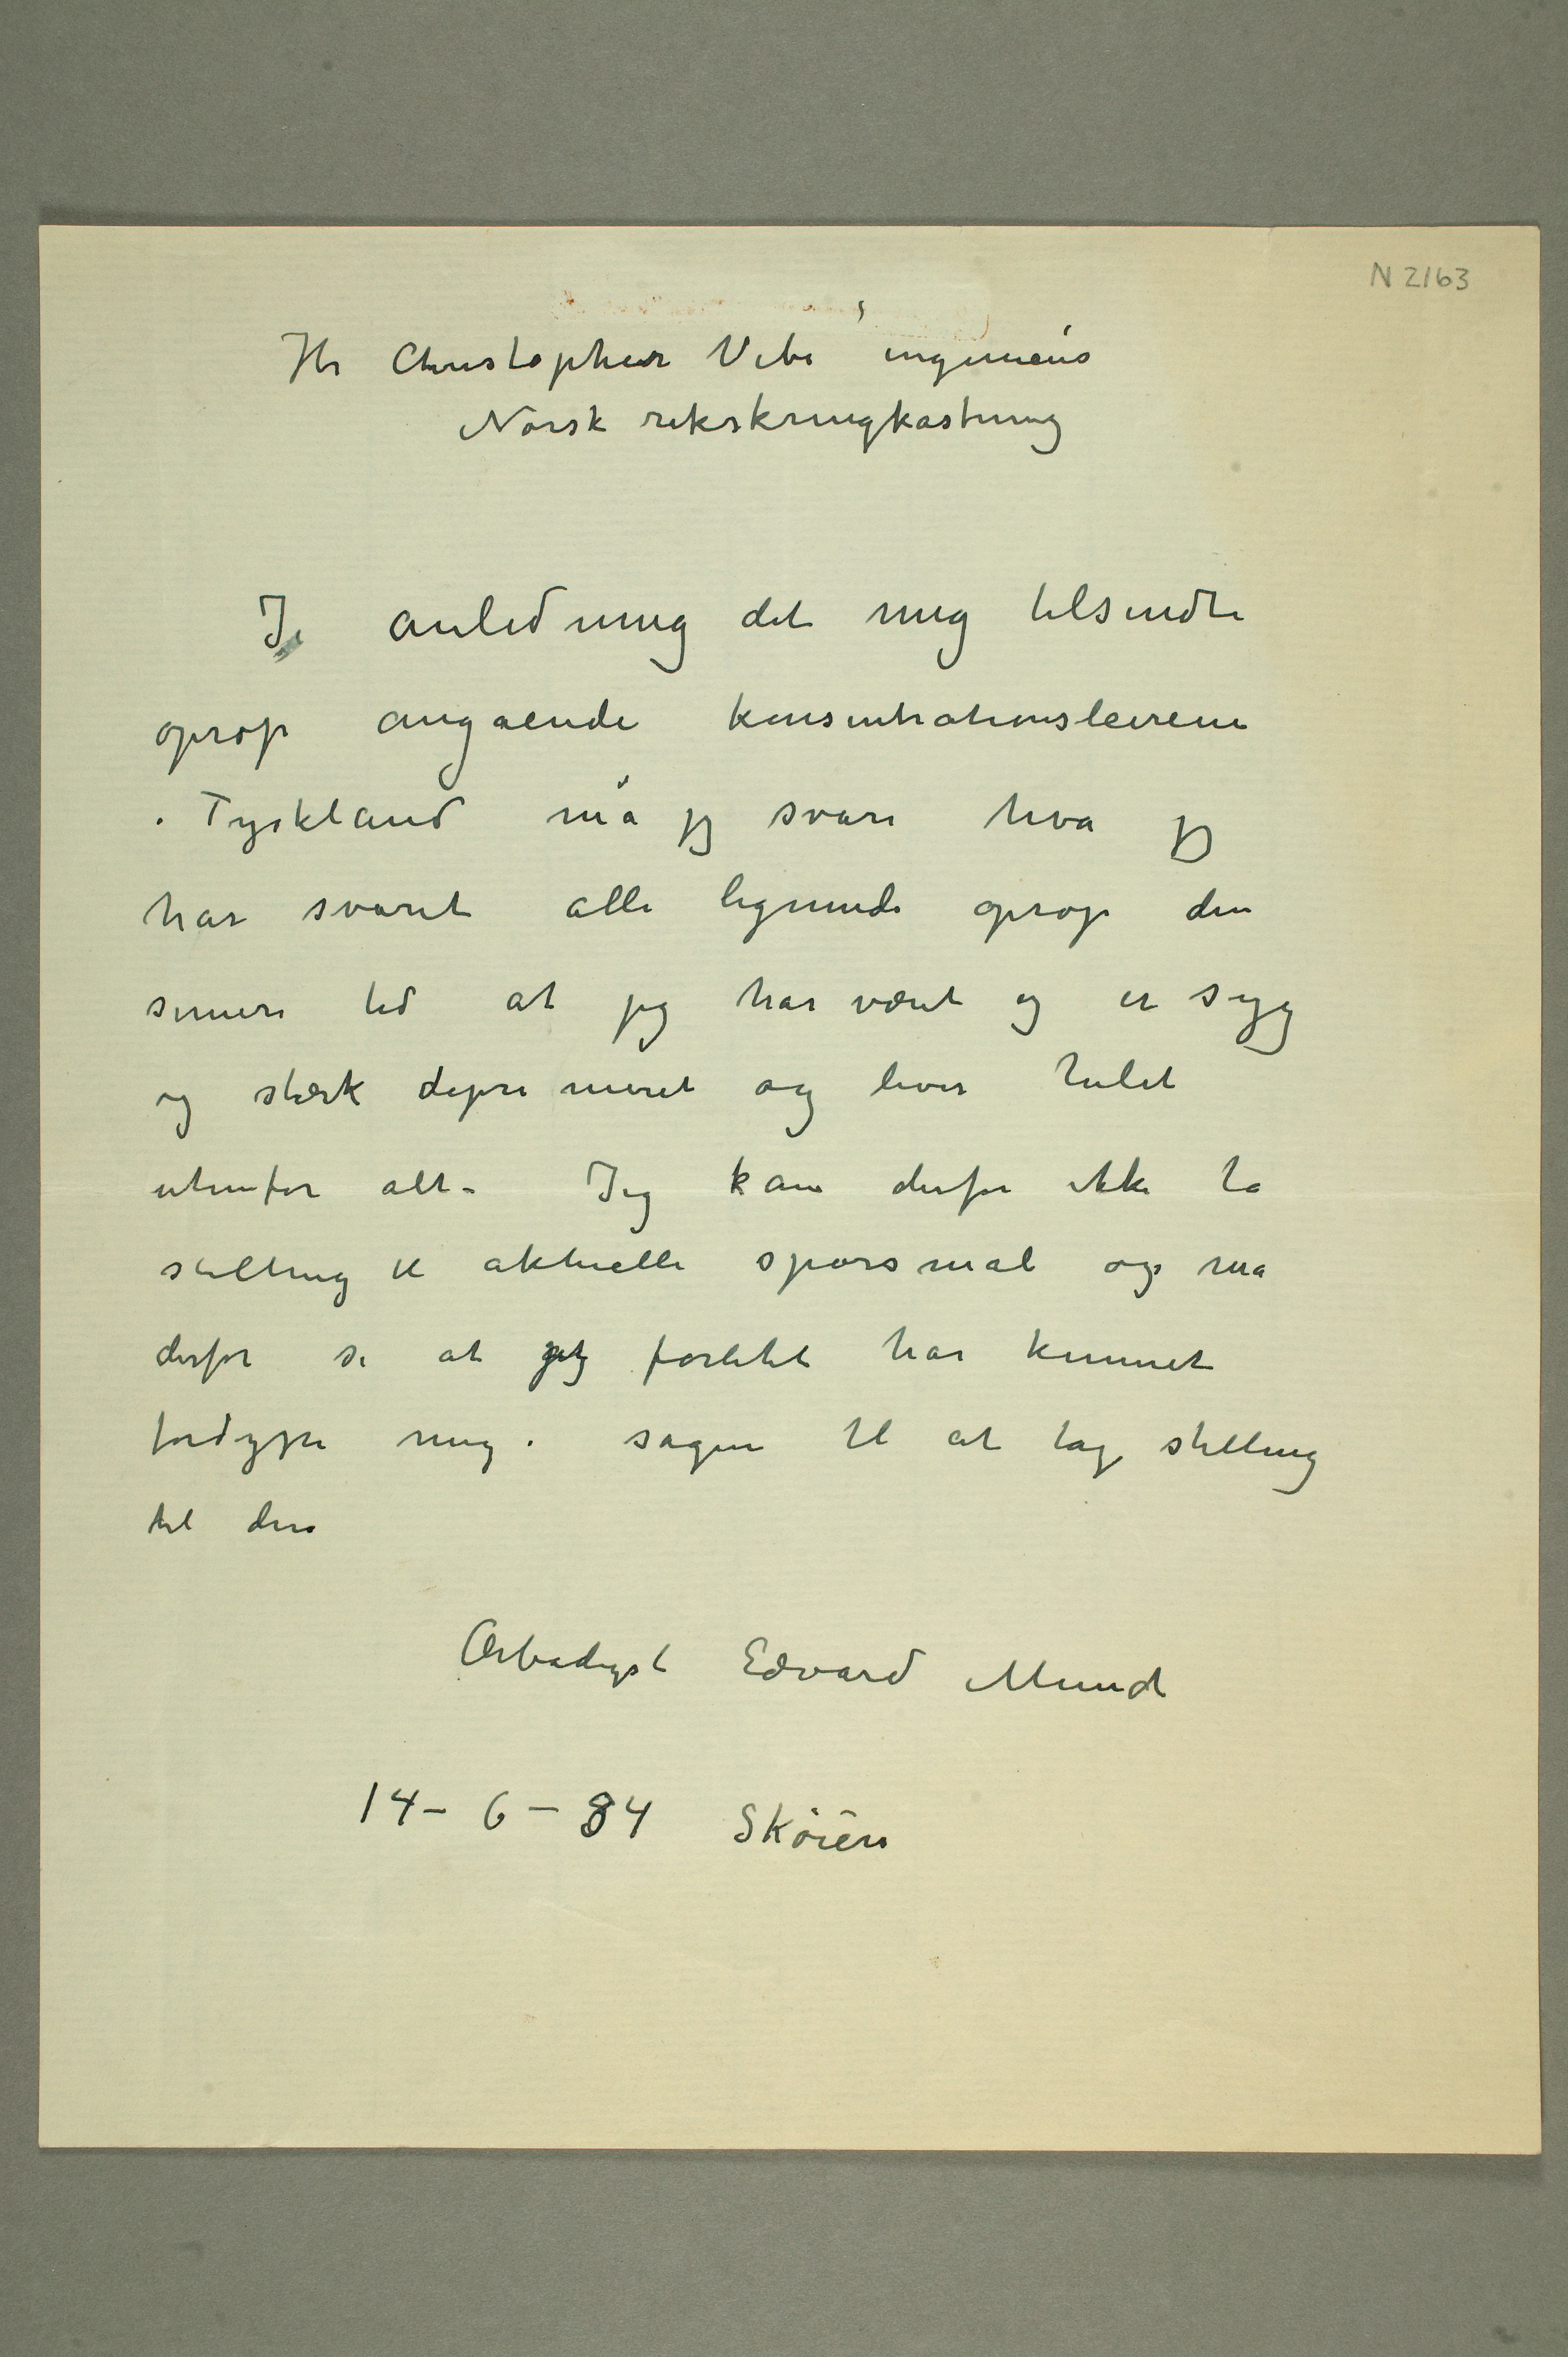 N 2163
Hr Christopher Vibe ingeniør
Norsk rikskringkastning
I anledning det mig tilsendte
oprop angående konsentrationsleirene
i Tyskland må jeg svare hva jeg
har svaret alle lignende oprop den
senere tid at jeg har været og er syg
og stærk deprimeret og lever helet
utenfor alt – Jeg kan derfor ikke ta
stilling til aktuelle spørsmål og må
derfor si at jeg forlitet har kunnet
fordype mig i sagen til at tag stilling
til den
Ærbødigst Edvard Munch
14 – 6 – 34 Skøien